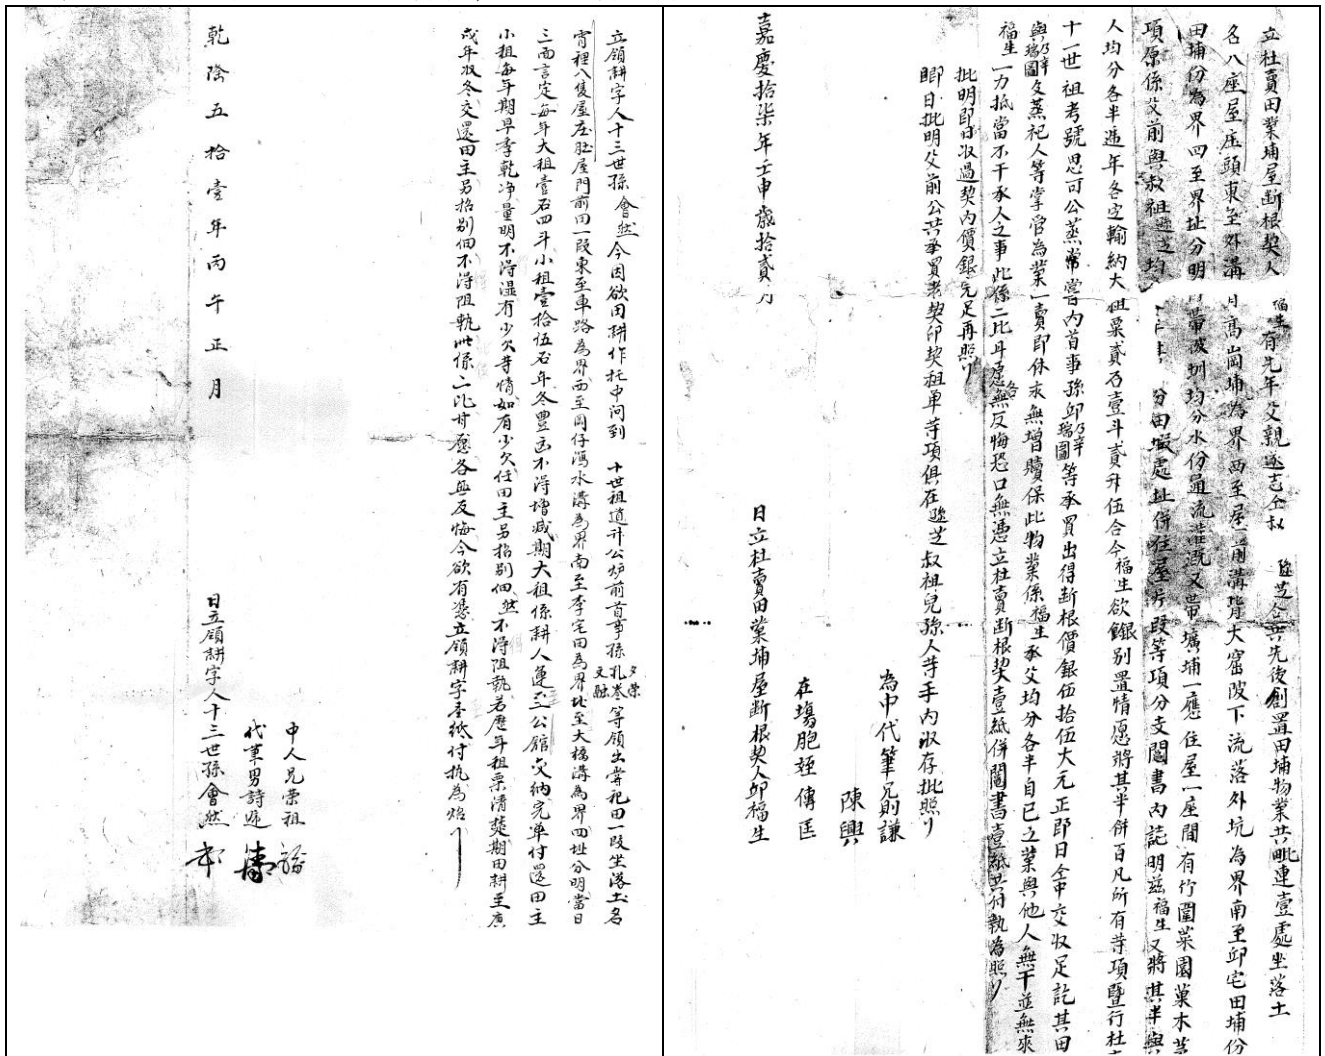 立杜賣田業埔屋断根契人 福生有先年父親遜志仝叔 遜芝仝共先後創置田埔物業共毗連壹處坐落土
名八座屋庄頭東至外溝 高崗埔為界西至屋前溝背大窑陂下流落外坑為界南至邱宅田埔份
田埔份為界四至界址分明 帶陂圳均分水份通流灌溉又帶壙埔一應住屋一座間有竹圍菜園菓木等
項原係父前與叔祖遜芝均 分田塅處址併住屋片段等項分支鬮書內註明茲福生又將其半與
人均分各半遞年各定輸納大租粟貳石壹斗貳升伍合今福生欲銀別置情愿將其半併百凡所有等項暨行杜
十一世祖考號思可公蒸嘗內首事孫邱乃辛瑞圖等承買出得断根價銀伍拾伍大元正即日仝中交收足訖其田
與乃辛瑞圖等蒸祀人等掌管為業一賣即休永無增贖保此物業係福生承父均分各半自己之業與他人無干並無來
福生一力抵當不干承人之事此係二比甘愿無反悔恐口無憑立杜賣断根契壹紙併鬮書壹紙共付執為照
批明即日收過契內價銀完足再照
即日批明父前公共承買老契印契租單等項俱在遜芝叔祖兒孫人等手內收存批照
為中代筆兄則謙
陳興
在塲胞姪傳匡
嘉慶拾柒年壬申歲拾貳月 日立杜賣田業埔屋断根契人邱福生
立領耕字人十三世孫會然今因欲田耕作托中问到 十世祖道升公炉前首事孫夕荣孔岺文融等領出嘗祀田一段坐落土名
宵裡八隻屋庄肚屋門前田一段東至車路為界西至圳仔瀉水溝為界南至李宅田為界北至大橋溝為界四址分明當日
三面言定每年大租壹石四斗小租壹拾伍石年冬豊凶不得增减期大租係耕人運至公舘交納完单付還田主
小租每年期早季乾净量明不得湿有少欠等情如有少欠任田主另招別佃然不得阻执若歷年租粟清楚期田耕至庚
戌年收冬交還田主另招別佃不得阻執此係二比甘愿各無反悔今欲有憑立領耕字壹紙付执為炤
中人兄荣祖
代筆男詩廷
乾隆五拾壹年丙午正月 日立領耕字人十三世孫會然